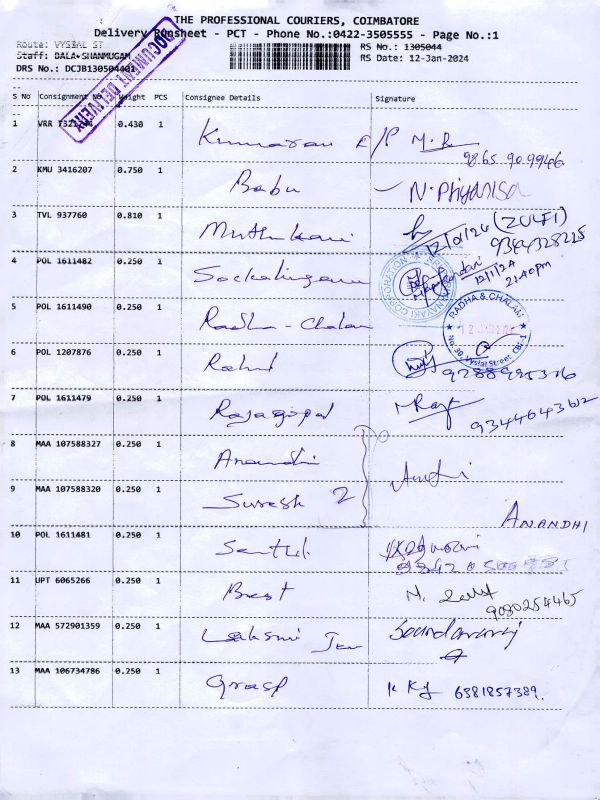 THE PROFESSIONAL COURIERS, COIMBATORE
Delivery Runsheet - PCT - Phone No.:0422-3505555 - Page No.:1
Route: VYSIAL ST RS No.: 1305044
Staff: BALA SHANMUGAM RS Date: 12-Jan-2024
DRS No.: DCJB130504401
DOCUMENT DELIVERY
S No Consignment No Weight PCS Consignee Details Signature
1 VRR 0.430 1 Kumaran E/P
98.65.90.9946
2 KMU 3416207 0.750 1 Babu N. Priyanisa
3 TVL 937760 0.810 1 Muthukani
12/01/24 (ZULFI)
4 POL 1611482 0.250 1 Sockalingam
12/1/24
2:40pm
5 POL 1611490 0.250 1 Radha - Chalam
RADHA & CHALAM
No. 30, Vysial Street, CBE-1
6 POL 1207876 0.250 1 Rahul
7 POL 1611479 0.250 1 Rajagopal Raja
8 MAA 107588327 0.250 1 Anandhi
9 MAA 107588320 0.250 1 Suresh 2
ANANDHI
10 POL 1611481 0.250 1 Senthil
11 UPT 6065266 0.250 1 Best
9080254465
12 MAA 572901359 0.250 1 Lakshmi Soundararaj
13 MAA 106734786 0.250 1 Grasp 6381857389.